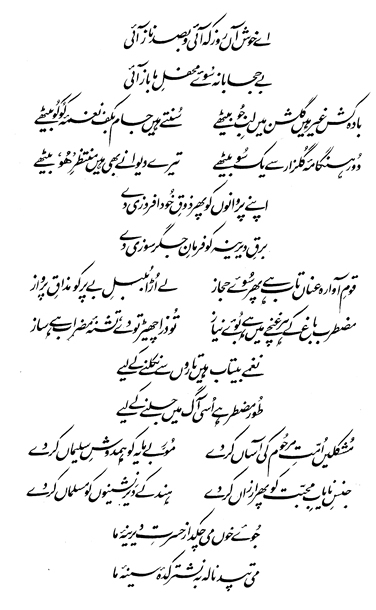 اے خوش آں روز کہ آئی و بصد ناز آئی
بے حجابانہ سُوئے محفلِ ما باز آئی
بادہ کش غیر ہیں گلشن میں لبِ جُو بیٹھے سُنتے ہیں جام بکف نغمۂ کُوکُو بیٹھے
دور ہنگامۂ گُلزار سے یک سُو بیٹھے تیرے دیوانے بھی ہیں منتظرِ ھُو بیٹھے
اپنے پروانوں کو پھر ذوقِ خُود افروزی دے
برقِ دیرینہ کو فرمانِ جگر سوزی دے
قومِ آوارہ عناں تاب ہے پھر سُوئے حجاز لے اُڑا بُلبلِ بے پر کو مذاقِ پرواز
مضطرب باغ کے ہر غنچے میں ہے بُوئے نیاز تُو ذرا چھیڑ تو دے، تشنۂ مضراب ہے ساز
نغمے بیتاب ہیں تاروں سے نکلنے کے لیے
طُور مضطر ہے اُسی آگ میں جلنے کے لیے
مُشکلیں اُمّتِ مرحُوم کی آساں کر دے مُورِ بے مایہ کو ہمدوشِ سلیماں کر دے
جنسِ نایابِ محبّت کو پھر ارزاں کر دے ہند کے دیر نشینوں کو مسلماں کر دے
جُوئے خوں می چکد از حسرتِ دیرینۂ ما
می تپد نالہ بہ نشتر کدۂ سینۂ ما